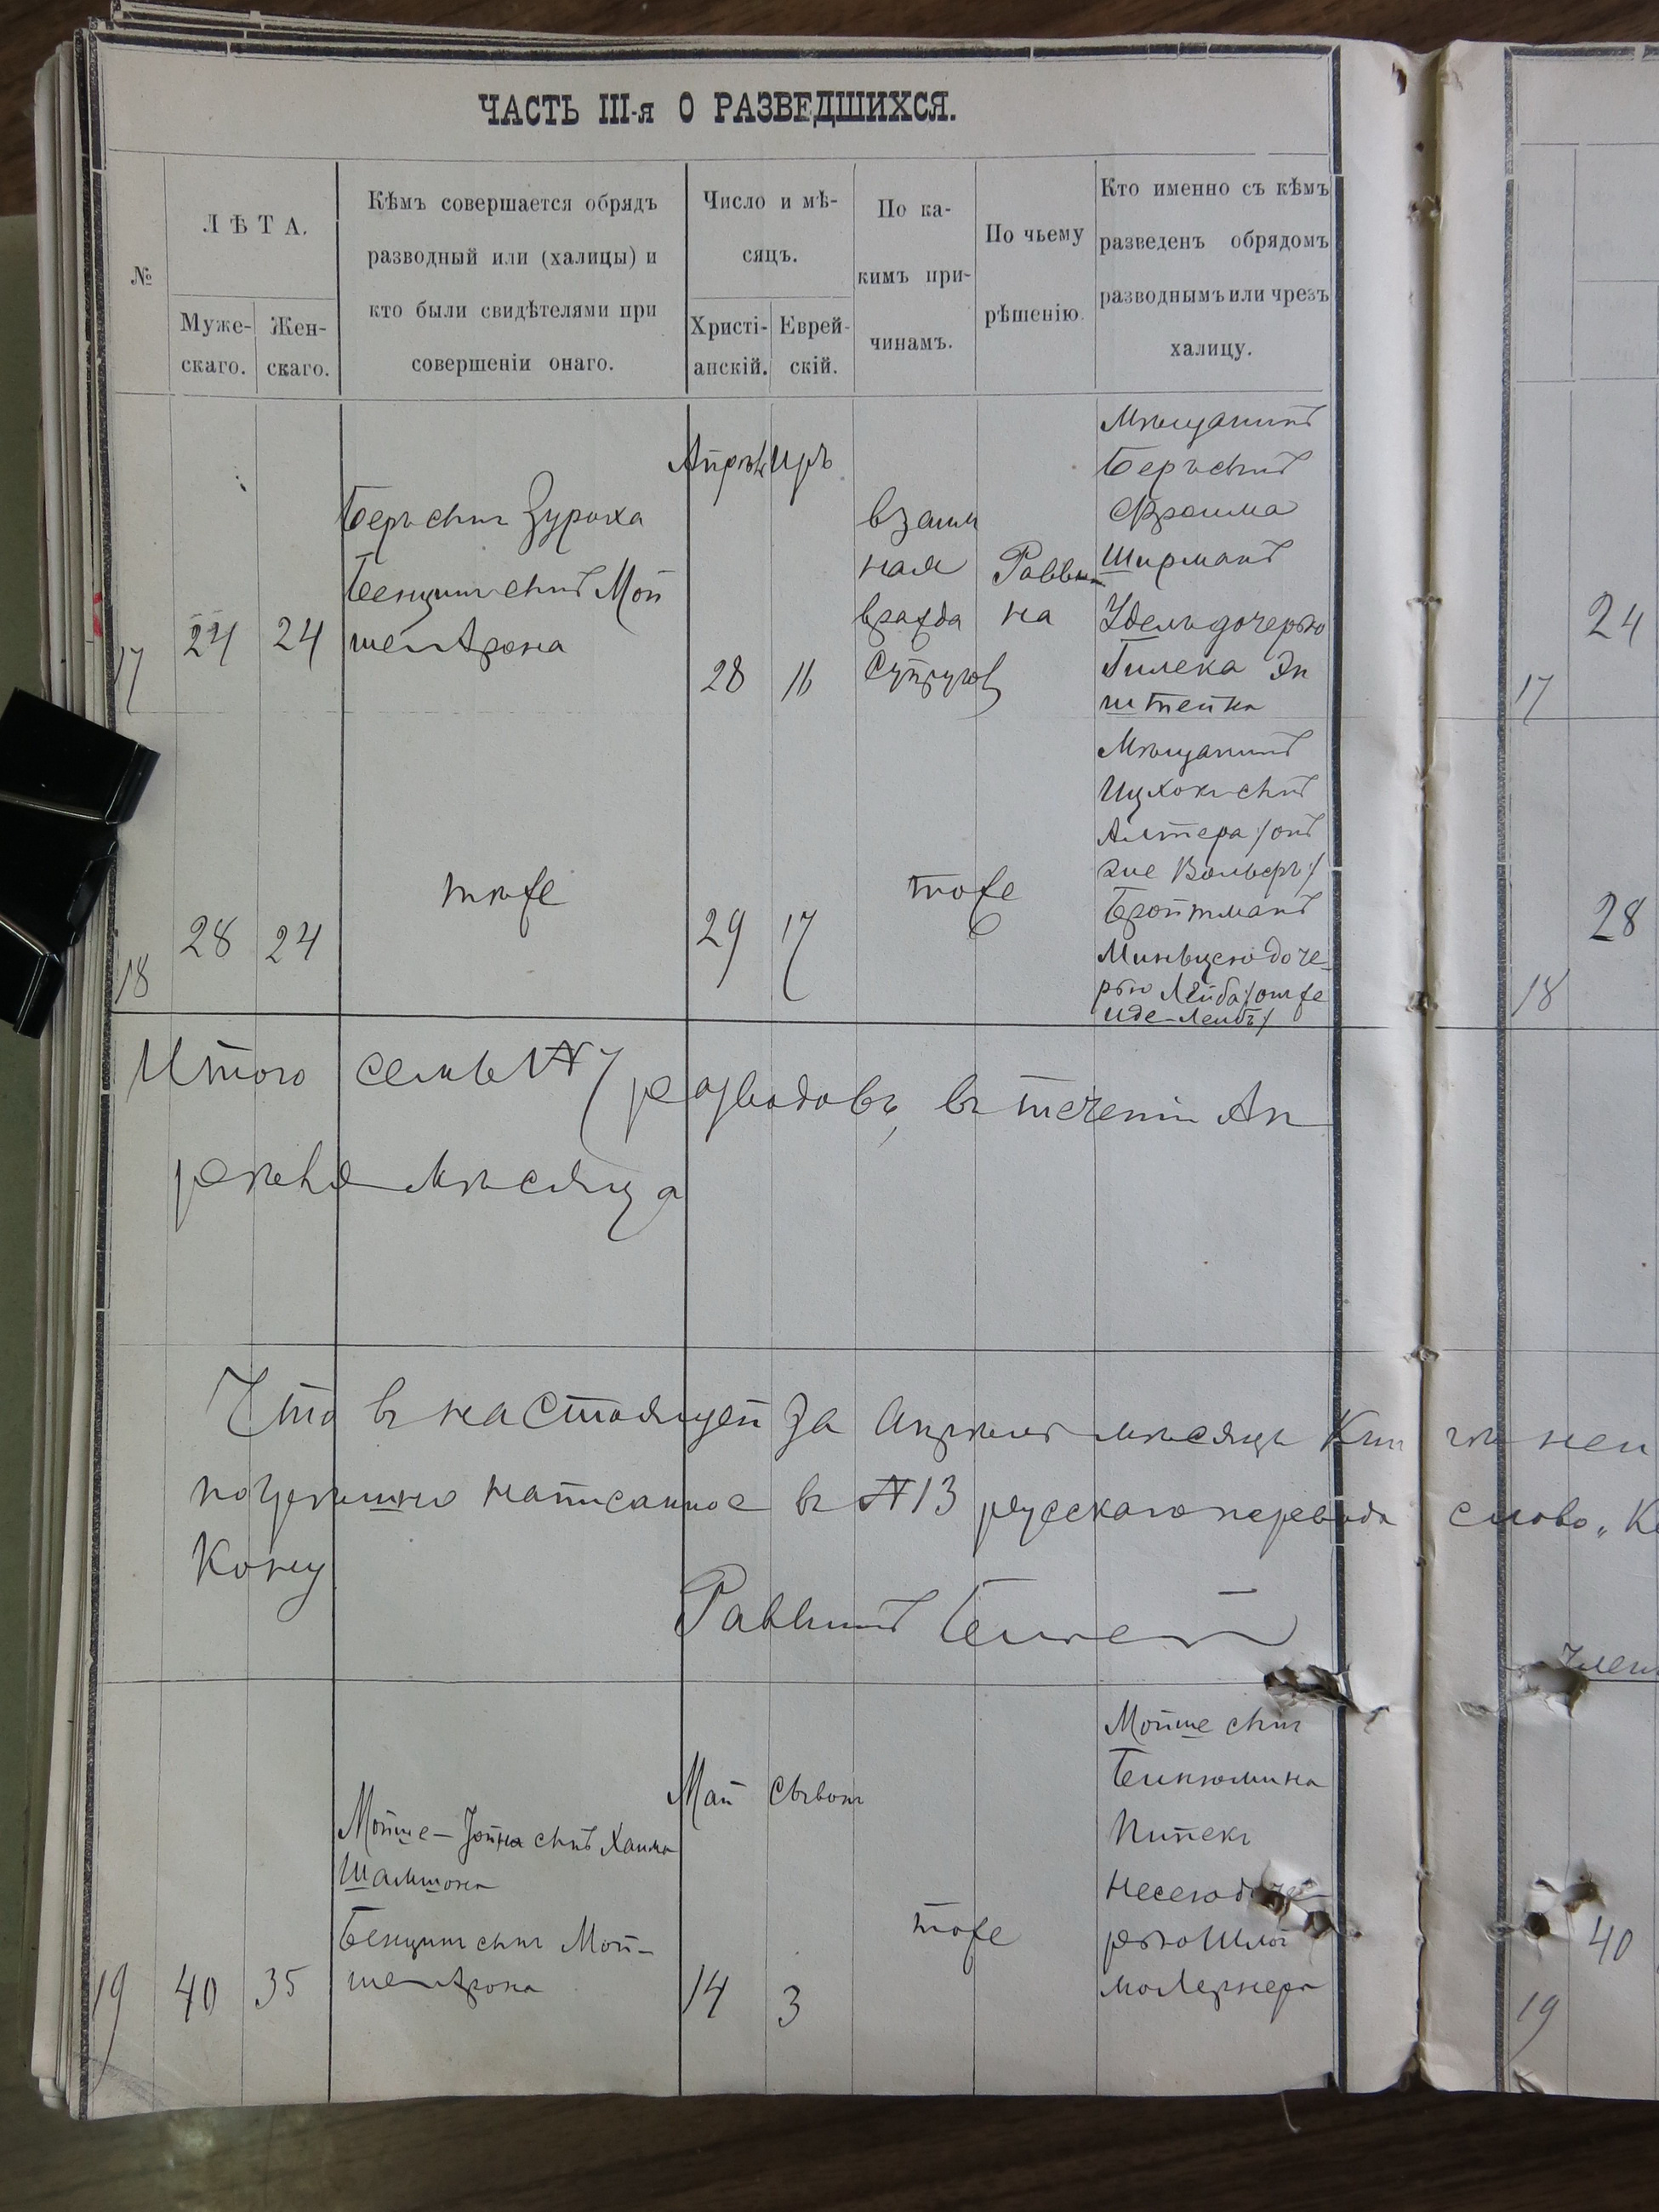 ЧАСТЬ III-я О РАЗВЕДШИХСЯ.
№
ЛѢТА.
Муже-
скаго.
Жен-
скаго.
Кѣмъ совершается обрядъ
разводный или (халицы) и
кто были свидѣтелями при
совершеніи онаго.
Число и мѣ-
сяцъ.
Христі-
анскій.
Еврей-
скій.
По ка-
кимъ при-
чинамъ.
По чьему
рѣшенію
Кто именно съ кѣмъ
разведенъ обрядомъ
разводнымъ или чрезъ
халицу.
17
24
24
Беръ сынъ Зуроха
Бенціонъ сынъ Мой
ше-Арона
Апрѣль
28
Иръ
16
взаим
ная
вражда
супруговъ
Равви
на
Мѣщанинъ
Беръ сынъ
Фроима
Ширманъ
Удель дочерью
Гилека Эп
штейна
18
28
24
тоже
29
17
тоже
Мѣщанинъ
Ицхокъ сынъ
Алтера /онъ
же Вольфъ/
Бройтманъ
Миньцею доче-
рью Лейба /онъ же
Иде-Лейбъ/
Итого семь №7 разводовъ, въ теченіи Ап
рѣля мѣсяца
Что въ настоящей за Апрѣль мѣсяцъ Кни гѣ неи
написанное въ №13 русскаго перевода слово „
Кону
Раввинъ
19
40
35
Мойше-Зойна сынъ Хаима
Шамшона
Бенціонъ сынъ Мой-
ше-Арона
Май
14
Сывонъ
3
тоже
Мойше сынъ
Бинюмина
Питекъ
Несею доче-
рью Шлой
ма Лернера
24
17
28
18
40
19